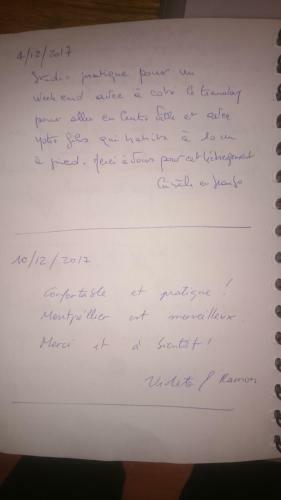 4/12/2017
Studio pratique pour un
week end avec à coté le tramway
pour aller en Centre Ville et avec
notre fils qui habite à 10 mn
à pied. Merci à vous pour cet hébergement
10/12/2017
Confortable et pratique!
Montpellier est merveilleux.
Merci et à bientôt!
Violeta & Ramon